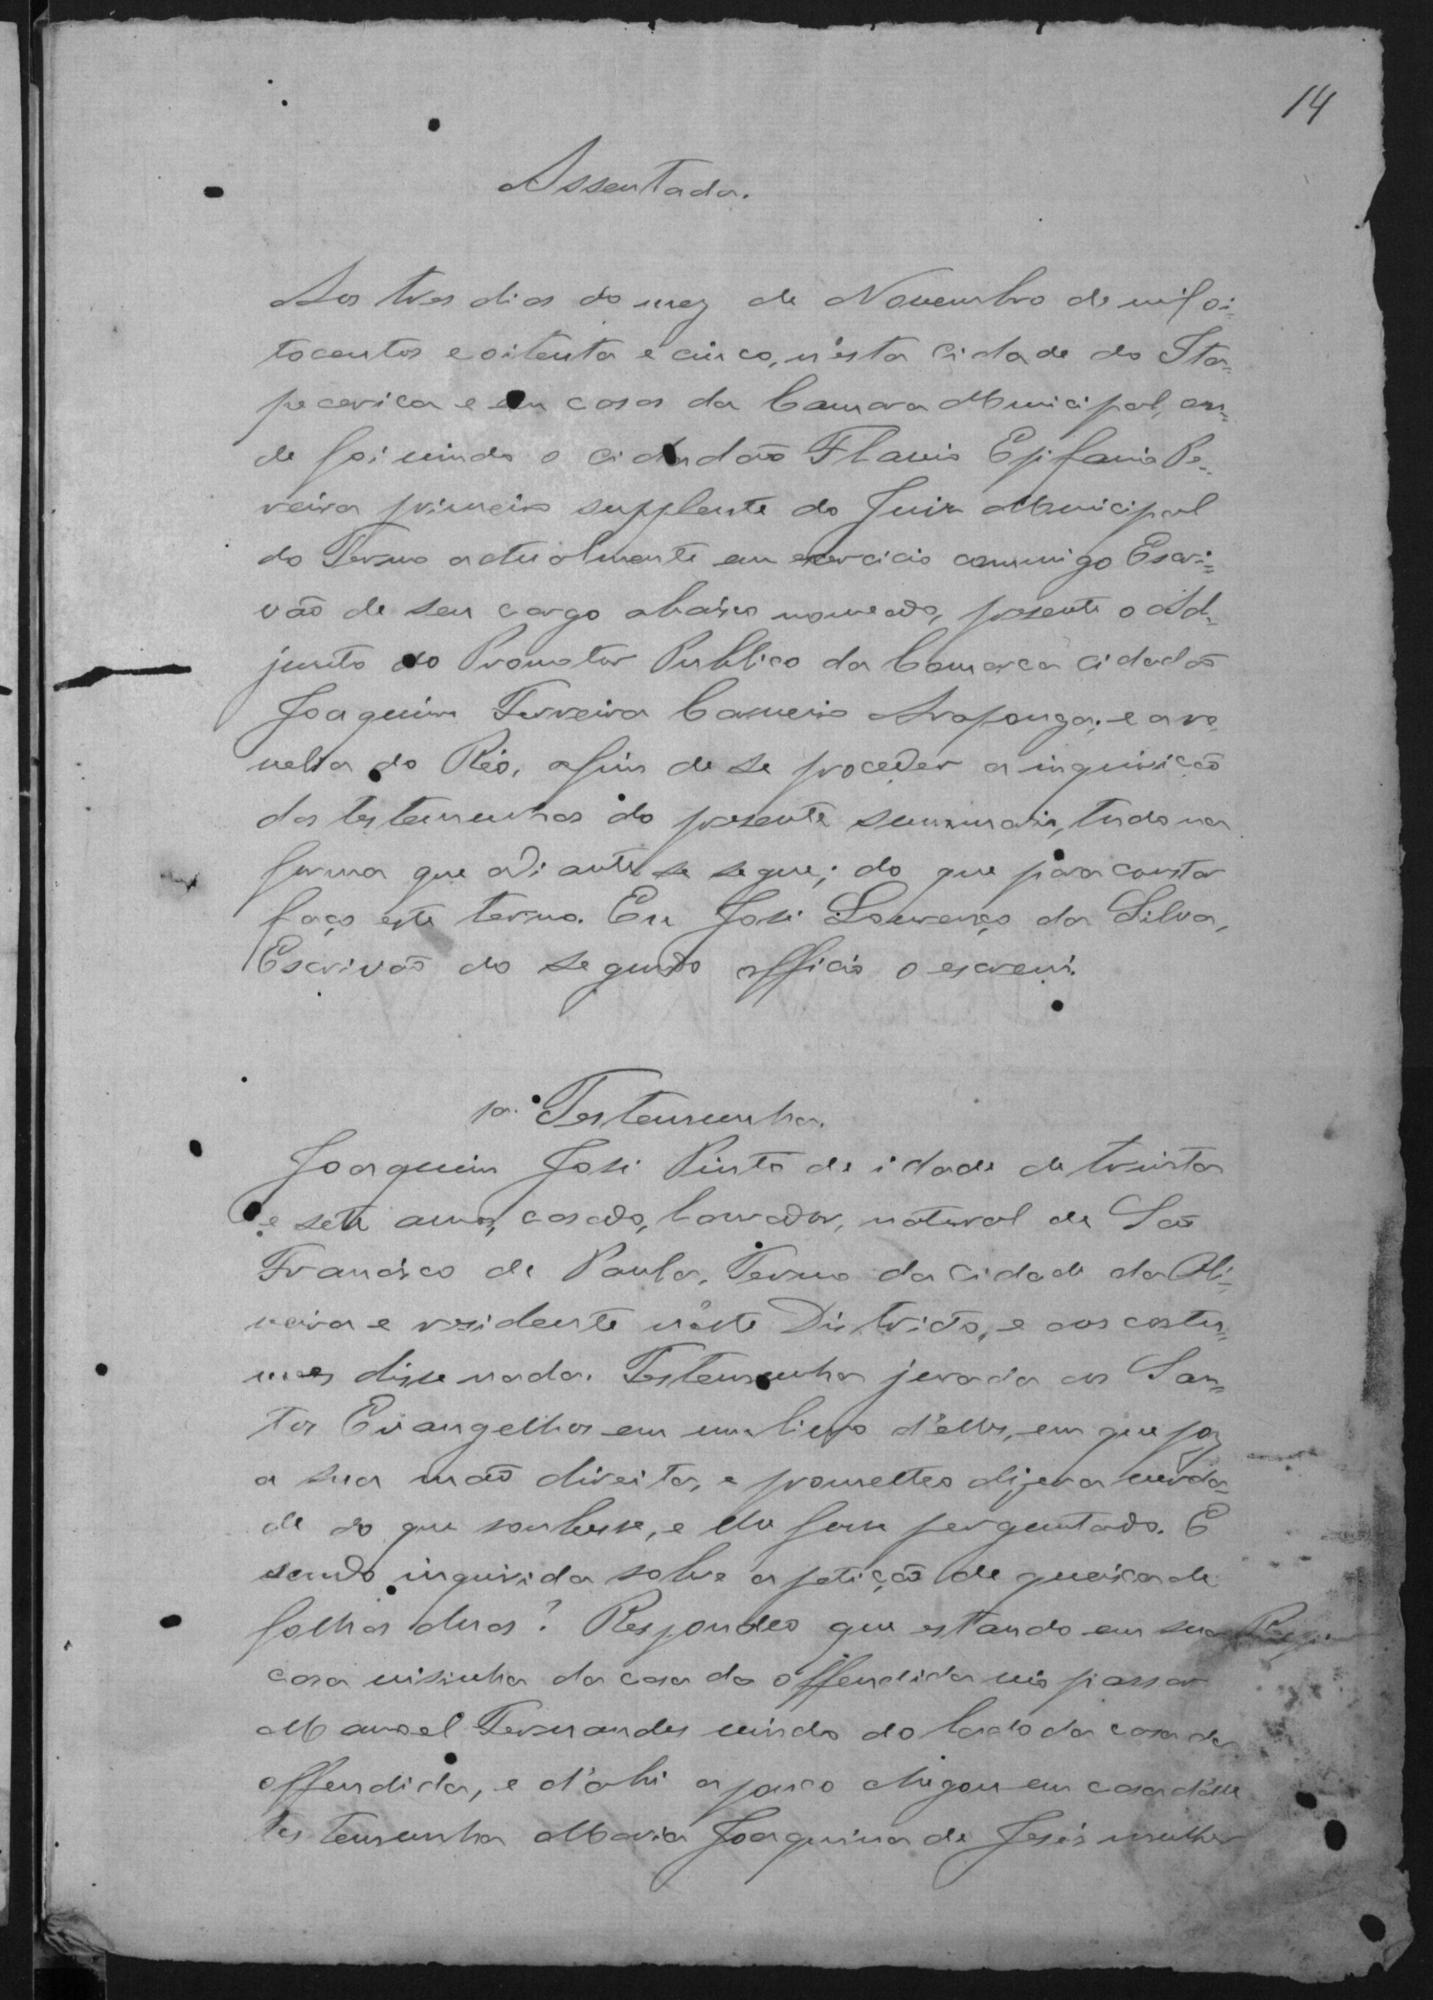 14
Assentada.
Aos tres dias do mez de Novembro de mil oi=
tocentos e oitenta e cinco, n'esta cidade do Ita=
pecerica e em casas da Camara Municipal, on=
de foi vindo o cidadão Flavio Epifanio Pe=
reira primeiro supplente do Juiz Municipal
do Termo actualmente em exercicio commigo Escri=
vão de seu cargo abaixo nomeado, presente o Ad=
junto do Promotor Publico da Comarca cidadão
Joaquim Ferreira Carneiro Araponga; e a re
velia do Réo, afim de se proceder a inquirição
das testemunhas do presente summario, tudo na
forma que adiante se segue; do que para constar
faço este termo. Eu José Lourenço da Silva,
Escrivão do segundo officio o escrevi.
1a. Testemunha.
Joaquim José Pinto de idade de trinta
e sete annos, casado, lavrador, natural de São
Francisco de Paula, Termo da cidade da Oli=
veira e residente n'este Districto, e aos costu=
mes disse nada. Testemunha jurada aos San=
tos Evangelhos em um livro d'elles, em que poz
a sua mão direita, e prometteo dizer a verda=
de do que soubesse, e lhe fosse perguntado. E
sendo inquirida sobre a petição de queixa de
folhas duas? Respondeo que estando em sua
casa visinha da casa da offendida vio passar
Manoel Fernandes vindo do lado da casa da
offendida, e d'ahi a pouco chegou em casa d'elle
testemunha Maria Joaquina de Jesús mulher